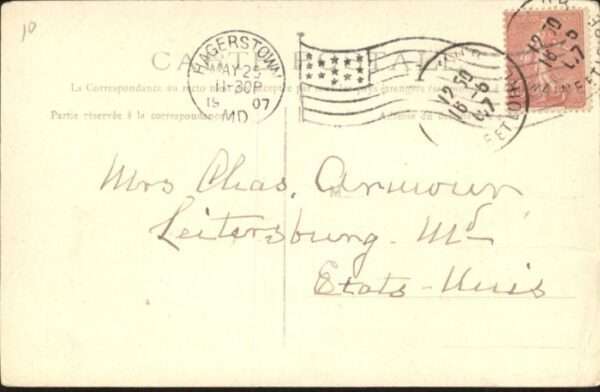 10
CARTE POSTALE
HAGERSTOWN
MAY 25
11-30P
19 07
MD
La Correspondance au recto n'est pas acceptée par tous les pays étrangers
Partie réservée à la correspondance
Adresse du destinataire
12 50
16 -5
07
ET LOIRE
12 50
16 -5
07
Mrs Chas. Armour
Leitersburg. Md
Etats-Unis